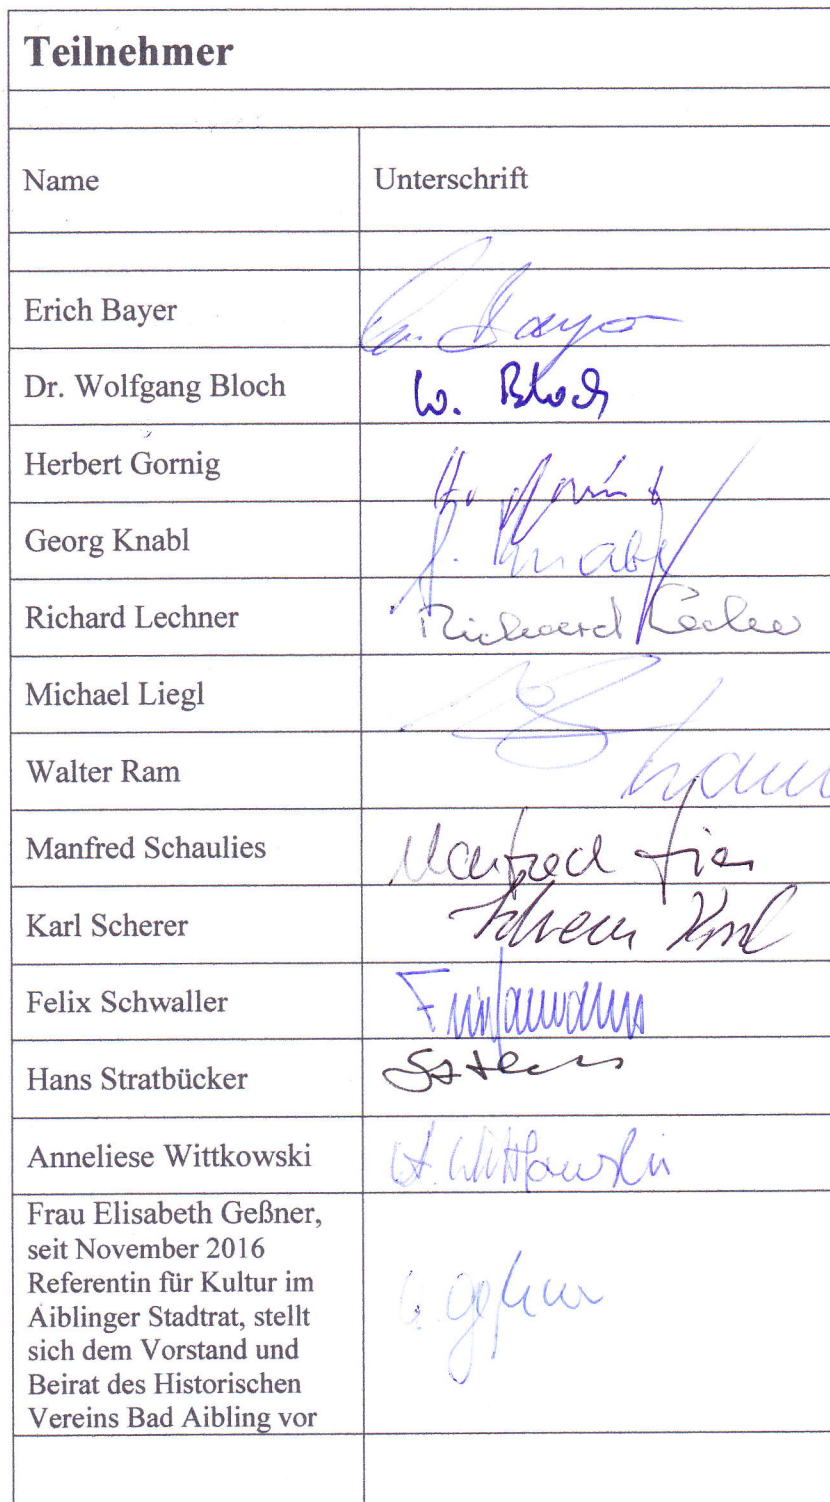 Teilnehmer
Name
Unterschrift
Erich Bayer
Bayer
Dr. Wolfgang Bloch
W. Bloch
Herbert Gornig
Georg Knabl
G. Knabl
Richard Lechner
Richard Lechner
Michael Liegl
Walter Ram
Manfred Schaulies
Manfred
Karl Scherer
Scherer Karl
Felix Schwaller
Hans Stratbücker
Anneliese Wittkowski
A. Wittkowski
Frau Elisabeth Geßner,
seit November 2016
Referentin für Kultur im
Aiblinger Stadtrat, stellt
sich dem Vorstand und
Beirat des Historischen
Vereins Bad Aibling vor